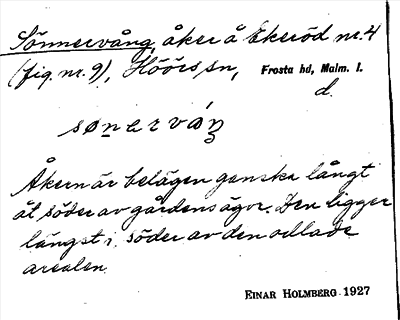 Sönnervång, åker å Ekeröd nr. 4
(fig. nr. 9), Höörs sn, Frosta hd, Malm. l.
d.
sønarvåŋ
Åkern är belägen ganska långt
åt söder av gårdens ägor. Den ligger
längst i söder av den odlade
arealen.
EINAR HOLMBERG 1927